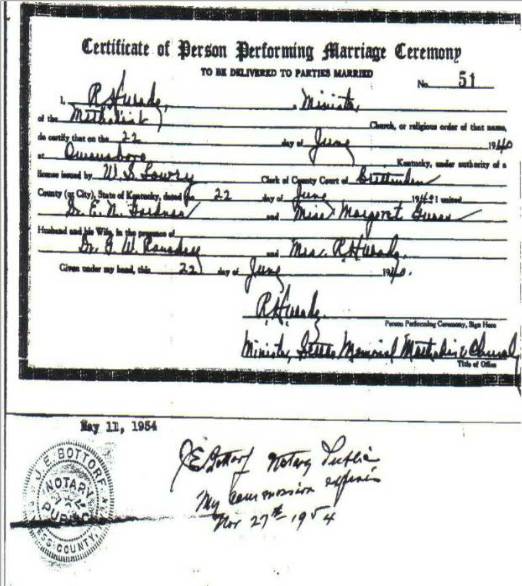 Certificate of Person Performing Marriage Ceremony
TO BE DELIVERED TO PARTIES MARRIED
No. 51
I, R. H. , Minister,
of the Methodist Church, or religious order of that name,
do certify that on the 22 day of June 1940
at Owensboro Kentucky, under authority of a
license issued by W. S. Lowry Clerk of County Court of Crittenden
County (or City), State of Kentucky, dated the 22 day of June 1940 I united
Dr. E. N. and Miss Margaret
Husband and his Wife, in the presence of
Dr. G. W. and Mrs. R. H.
Given under my hand, this 22 day of June 1940.
R. H.
Person Performing Ceremony, Sign Here
Minister, Settle Memorial Methodist Church
Title of Office
May 11, 1954
J E Bottorf Notary Public
My commission expires
Nov 27th 1954
J. E. BOTTORF
NOTARY
PUBLIC
ESS COUNTY,